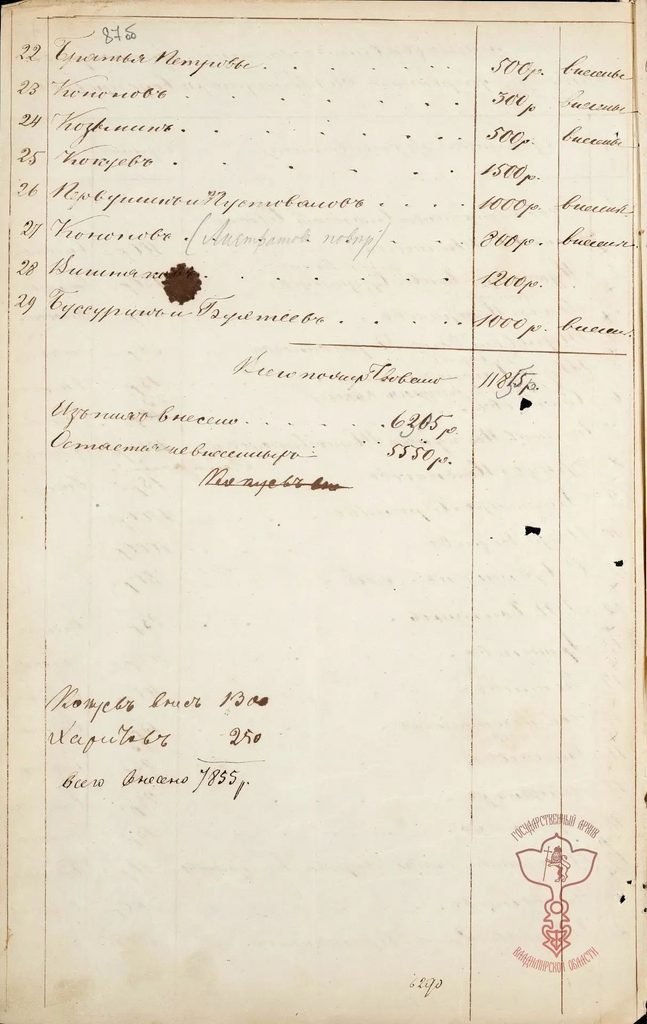 8750
22 Братья Петровы . . . . . . 500р. внесены
23 Кононовъ . . . . . . 300р внесены
24 Козьминъ . . . . . . 500р. внесены
25 Кокуевъ . . . . . . 1500р.
26 Первушинъ и Пустоваловъ . . . . 1000р. внесен.
27 Кононовъ (Листратов повпр) . . . 800р. внесен.
28 Вишняковъ . . . . . . 1200р.
29 Буссуринъ и Бултеевъ . . . . . 1000р. внесен.
Всего пожертвовано 11855р.
Изъ нихъ внесено . . . . . 6305р.
Остается не внесеныхъ . . 5550р.
Кокуевъ вн
Кокуевъ внесъ 1300
Харичевъ 250
всего внесено 7855р.
6290
ГОСУДАРСТВЕННЫЙ АРХИВ
ВЛАДИМИРСКОЙ ОБЛАСТИ